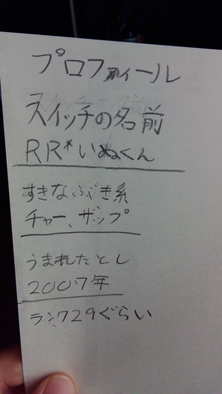 プロフィール
スイッチの名前
RR*いぬくん
すきなぶき系
チャー、ザップ
うまれたとし
2007年
ランク29ぐらい